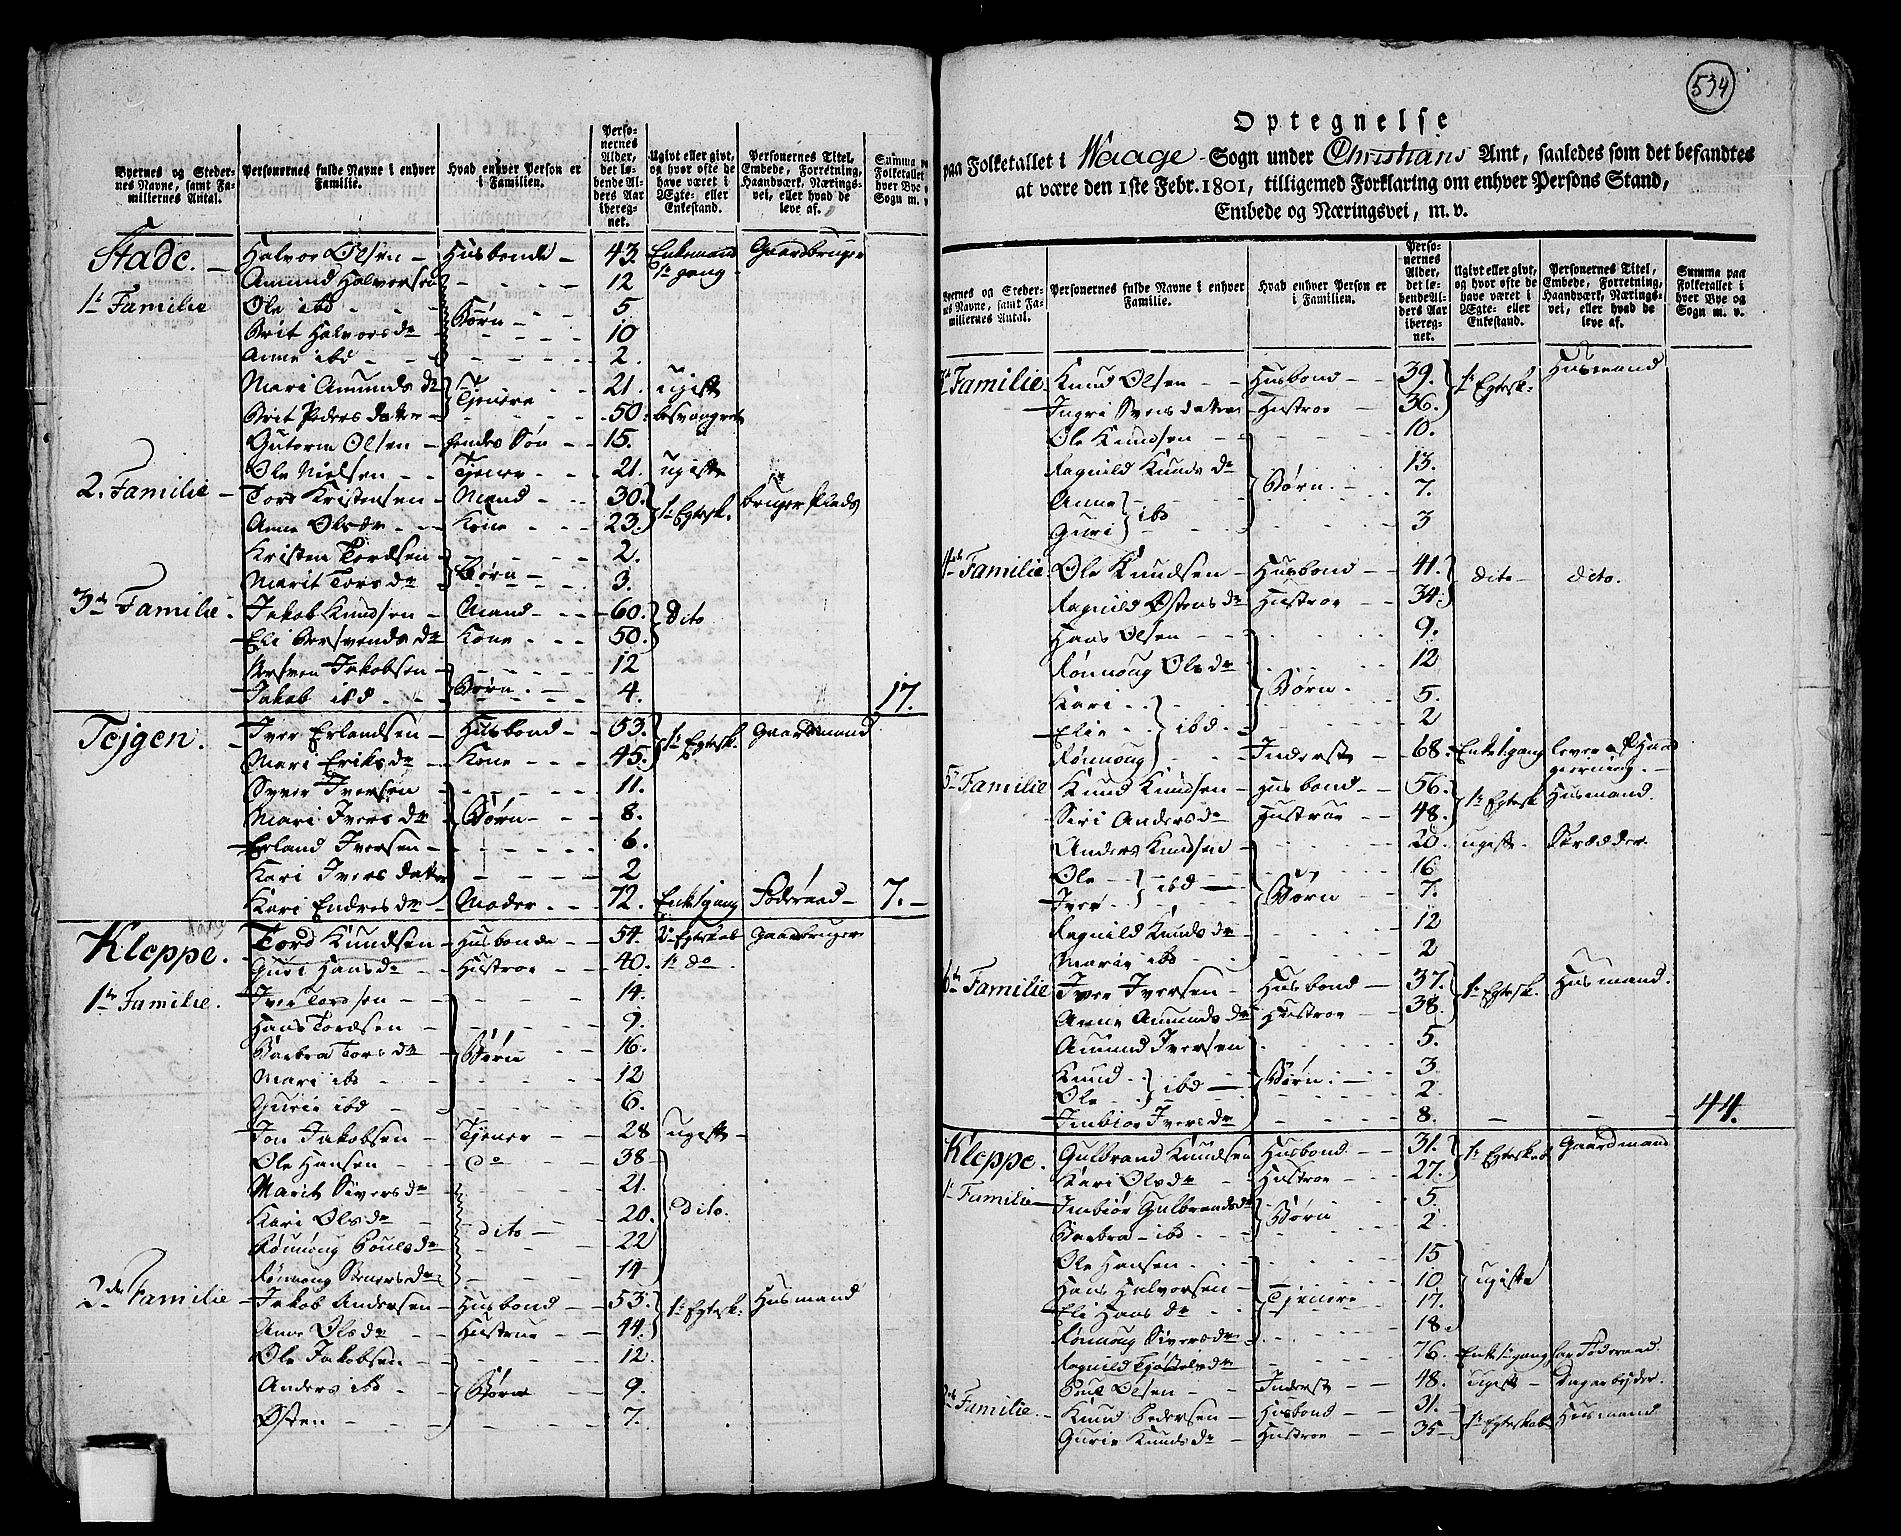 Byernes og Steder-
nes Navne, samt Fa-
miliernes Antal.
Personernes fulde Navne i enhver
Familie.
Hvad enhver Person er
i Familien.
Perso-
nernes
Alder,
det lø-
bende Al-
ders Aar
ibereg-
net.
Ugivt eller givt,
og hvor ofte de
have været i
Ægte- eller
Enkestand.
Personernes Titel,
Embede, Forretning,
Haandværk, Nærings-
vei, eller hvad de
leve af.
Summa
Folketallet
hver Bye
Sogn m.
Stade. Halvor Olsen Husbonde 43. Enkemand Gaardbruger
Amund Halvorsen 12 1e gang
1e Familie Ole ibd 5
Brit Halvorsdr Børn 10
Anne ibd 2.
Mari Amundsdr Tjenere 21. ugift
Brit Pedersdatter 50. besvangret
Gutorm Olsen hendes Søn 15.
Ole Nielsen Tjener 21. ugift
2. Familie Tord Kristensen Mand 30. 1e Egtesk. bruger Plads
Anne Olsdr Kone 23.
Kristen Tordsen 2.
Marit Torsdr Børn 3.
3de Familie Jakob Knudsen Mand 60. Dito
Eli Kone 50.
Jakobsen 12
Jakob ibd Børn 4. 17.
Tejgen. Iver Erlandsen Husbond 53. 1e Egtesk. Gaardmand
Mari Eriksdr Kone 45.
Syver Iversen 11.
Mari Iversdr Børn 8.
Erland Iversen 6.
Kari Iversdatter 2
Kari Endresdr Moder 72. Enke 1 gang Føderaad 7.
Kleppe. Tord Knudsen Husbonde 54. 2t Egteskab Gaardbruger
Guri Hansdr Hustroe 40. 1e do
1te Familie. Iver Tordsen 14.
Hans Tordsen 9.
Barbra Torsdr Børn 16.
Mari ibd 12
Gurie ibd 6.
Jon Jakobsen Tjener 28 ugift
Ole Hansen do 38
Marit Siversdr 21.
Kari Olsdr 20. Dito.
Rønnoug Poulsdr dito 22
Rønnoug Stenersdr 14
2de Familie Jakob Andersen Husbond 53. 1e Egtesk. Husmand
Anne Olsdr Hustrue 44.
Ole Jakobsen 12.
Anders ibd Børn 9.
Østen 7.
534
Optegnelse
paa Folketallet i Waage Sogn under Christians Amt, saaledes som det befandtes
at være den 1ste Febr. 1801, tilligemed Forklaring om enhver Persons Stand,
Embede og Næringsvei, m. v.
Byernes og Steder-
nes Navne, samt Fa-
miliernes Antal.
Personernes fulde Navne i enhver
Familie.
Hvad enhver Person er
i Familien.
Perso-
nernes
Alder,
det lø-
bende Al-
ders Aar
ibereg-
net.
Ugivt eller givt,
og hvor ofte de
have været i
Ægte- eller
Enkestand.
Personernes Titel,
Embede, Forretning,
Haandværk, Nærings-
vei, eller hvad de
leve af.
Summa paa
Folketallet i
hver Bye og
Sogn m. v.
Familie Knud Olsen Husbond 39. 1e Egtesk. Husmand
Ingri Svensdatter Hustroe 36.
Ole Knudsen 10.
Ragnild Knudsdr 13.
Anne Børn 7.
Guri ibd 3
4de Familie Ole Knudsen Husbond 41. dito dito.
Ragnild Østensdr Hustroe 34.
Hans Olsen 9.
Rønnoug Olsdr 12
Kari Børn. 5.
Elie ibd. 2
Rønnoug Inderst 68. Enke 1 gang lever af Haand
gierning.
5te Familie Knud Knudsen Husbond 56. 1e Egtesk. Husmand.
Siri Andersdr Hustroe 48.
Anders Knudsen 20. ugift. Skrædder.
Ole 16
Iver ibd Børn 7.
Ragnild Knudsdr 12
Marie ibd 2
6te Familie Iver Iversen Husbond 37. 1e Egtesk. Husmand.
Anne Amundsdr Hustroe 38.
Amund Iversen 5.
Knud Børn. 3
Ole ibd 2.
Imbiør Iversdr 8. 44.
Kleppe. Gulbrand Knudsen Husbond 31. 1e Egteskab Gaardmand
Kari Olsdr Hustroe 27.
1e Familie Imbiør Gulbrandsdr Børn 5.
Barbra ibd 2.
Ole Hansen 15
Hans Halvorsen 10 ugifte
Eli Hansdr Tjenere 17.
Rønnoug Siversdr 18.
Ragnild Kjøstelsdr 76. Enke 1 gang har Føderaad.
Poul Olsen Inderst 48. ugift Dagarbejder.
2de Familie. Knud Pedersen Husbond 31. 1e Egteskab Husmand
Gurie Knudsdr Hustroe 35